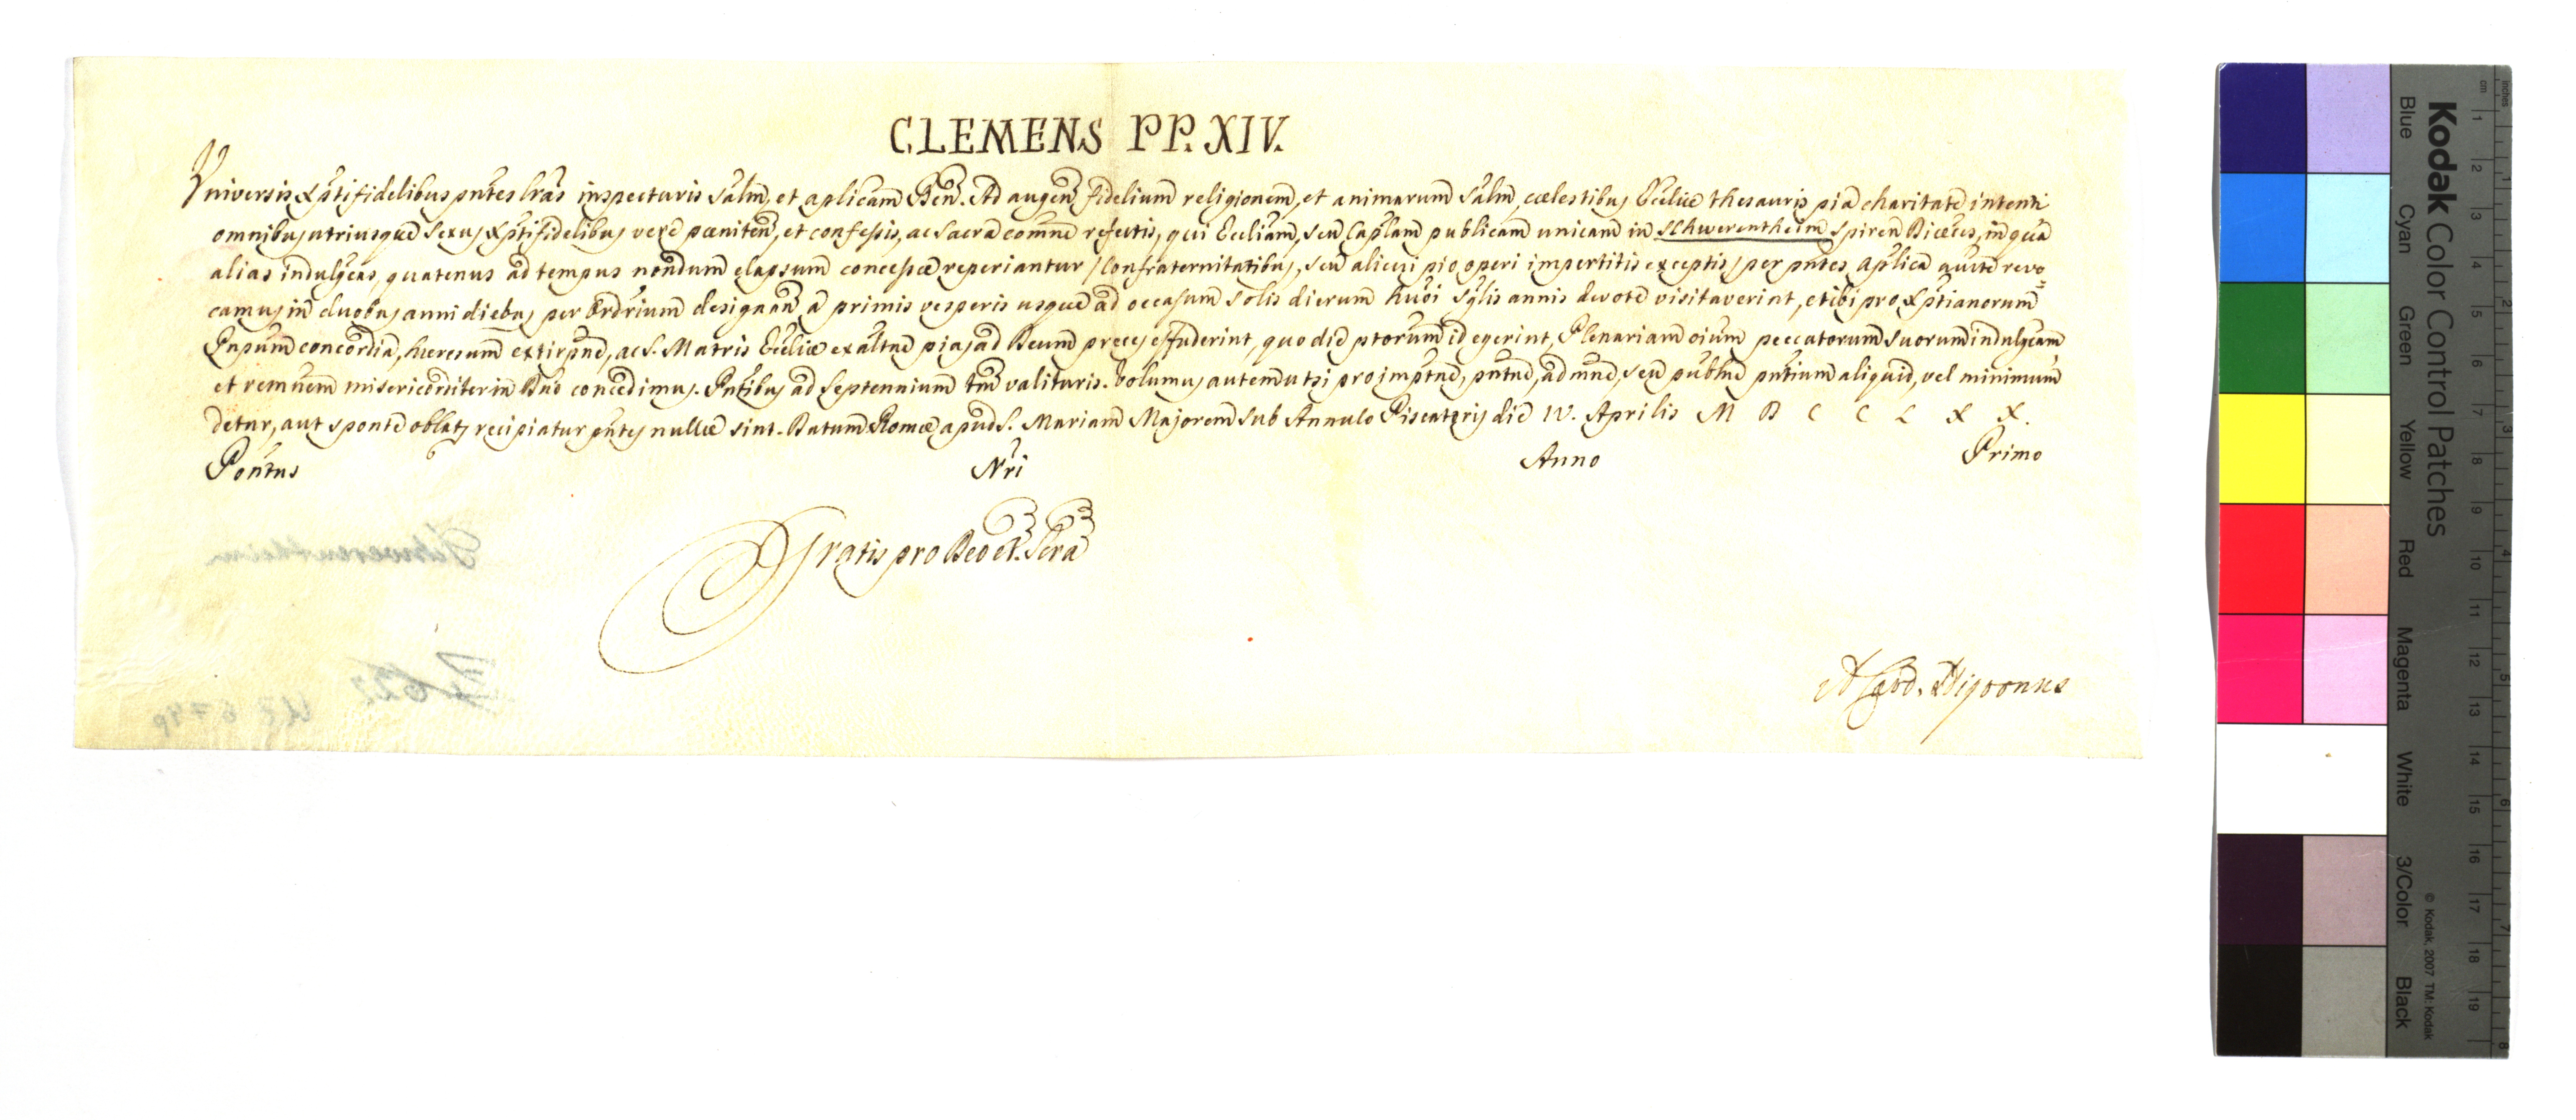 CLEMENS PP. XIV.
Vniversis Xp̃tifidelibus pñtes lr̃as inspecturis Sal̃m, et aplicam Ben̄. Ad augen̄ fidelium religionem, et animarum Sal̃m, cœlestibus Ecclіæ thesauris pia charitate intenti
omnibus utriusque sexus Xp̃tifidelibus vere pœniten̄, et confessis, ac Sacra com̃ne refectis, qui Eccliam, seu Cap̃lam publicam unicam in Schwerentheim Spiren Diœcis, in qua
alias indulg̃eas, quatenus ad tempus nondum elapsum concessæ reperiantur / Confraternitatibus, seu alicui pio operi impertitis exceptis / per pñtes Ap̃lica auctẽ revo=
camus in duobus anni diebus per Ordr̃ium designan̄ a primis vesperis usque ad occasum Solis dierum hũoi sg̃lis annis devote visitaverint, et ibi pro Xp̃tianorum
Pnpum concordia, heresum extirp̃ne, ac S. Matris Eccliæ exaltñe pias ad Deum preces effuderint, quo die ptorum id egerint, Plenariam oium peccatorum suorum indulg̃eam
et remnem misericorditer in Dño concedimus. Pñtibus ad Septennium tm̃ valituris. Volumus autem ut si pro impt̃ne, pñtne, admñe, seu publñe pñtium aliquid, vel minimum
detur, aut sponte oblatȝ recipiatur pñtes nullæ sint. Datum Romæ apud S. Mariam Majorem sub Annulo Piscatoris die IV. Aprilis M D C C L X X.
Pontus Nri Anno Primo
Gratis pro Deo et Scra
Schwerentheim
A Card. Nigronus